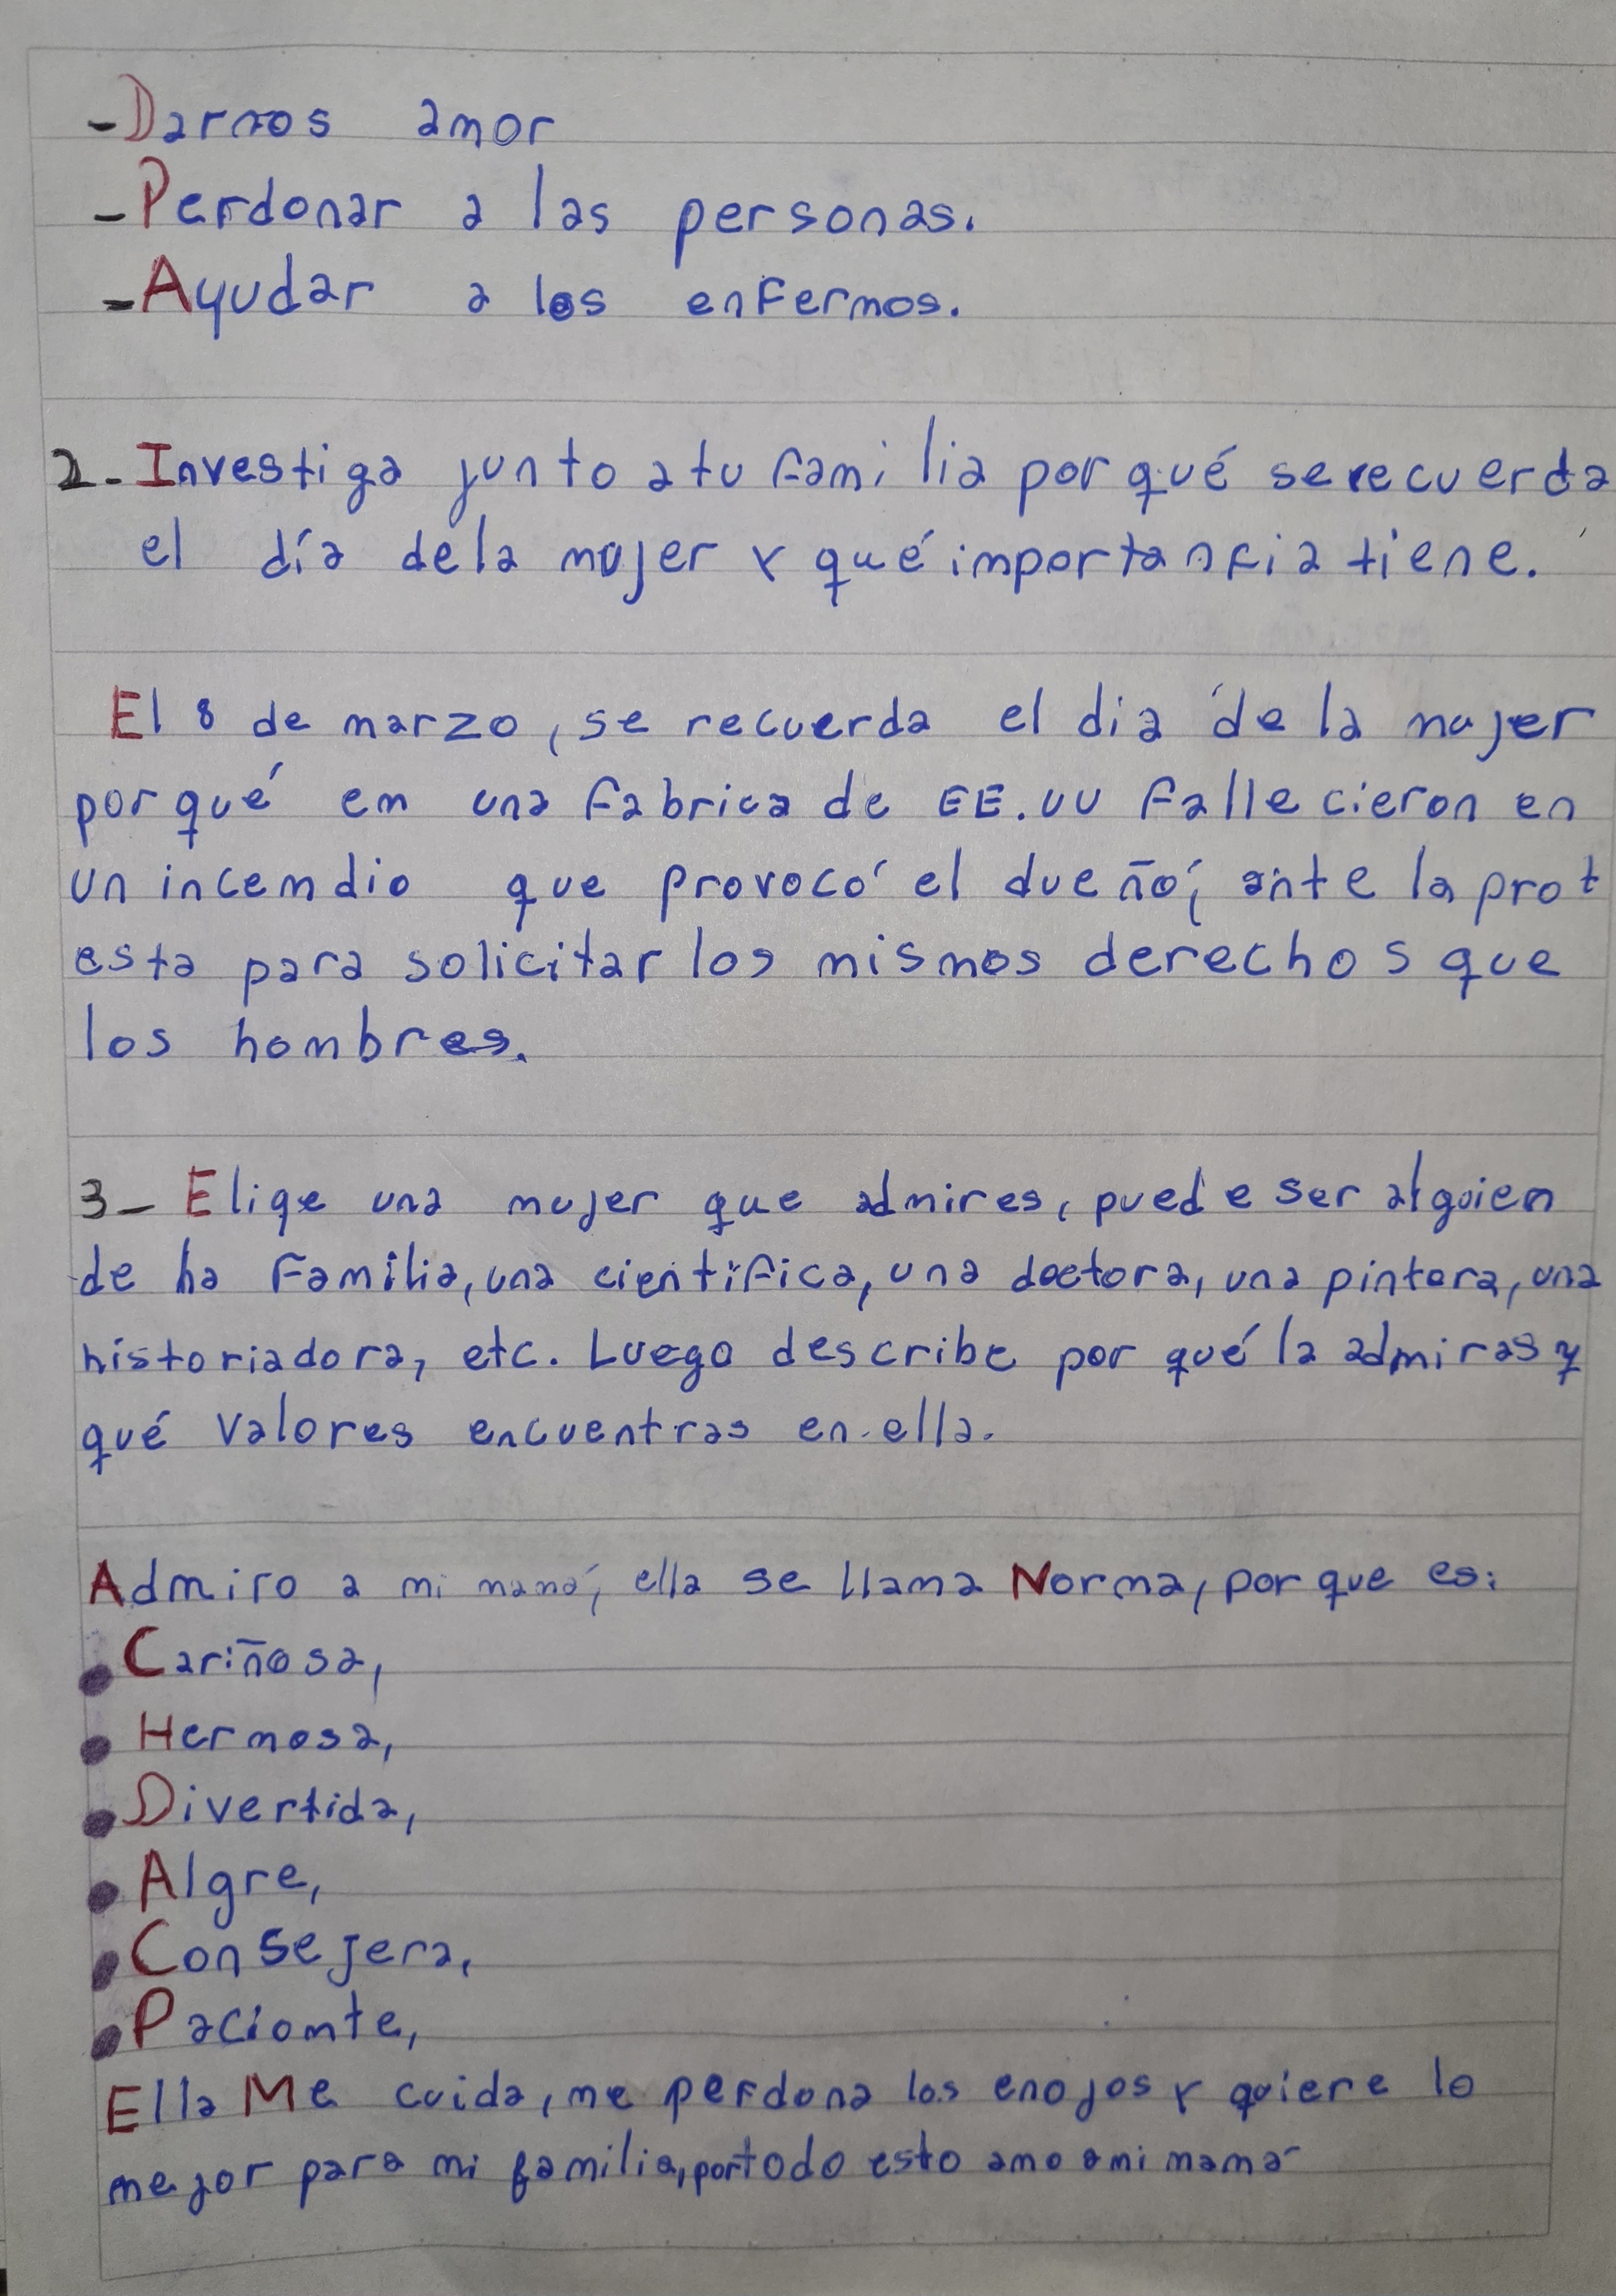 -Darnos amor
-Perdonar a las personas.
-Ayudar a los enfermos.
2-Investiga junto a tu familia por qué se recuerda
el día de la mujer y qué importancia tiene.
El 8 de marzo, se recuerda el dia de la mujer
porqué em una fabrica de EE.UU fallecieron en
un incemdio que provocó el dueño, ante la prot
esta para solicitar los mismos derechos que
los hombres.
3- Elige una mujer que admires, puede ser alguien
de la familia, una cientifica, una doctora, una pintora, una
historiadora, etc. Luego describe por qué la admiras y
qué valores encuentras en ella.
Admiro a mi mamá, ella se llama Norma, por que es:
• Cariñosa,
• Hermosa,
• Divertida,
• Algre,
• Consejera,
• Paciomte,
Ella Me cuida, me perdona los enojos y quiere lo
mejor para mi familia, por todo esto amo a mi mamá